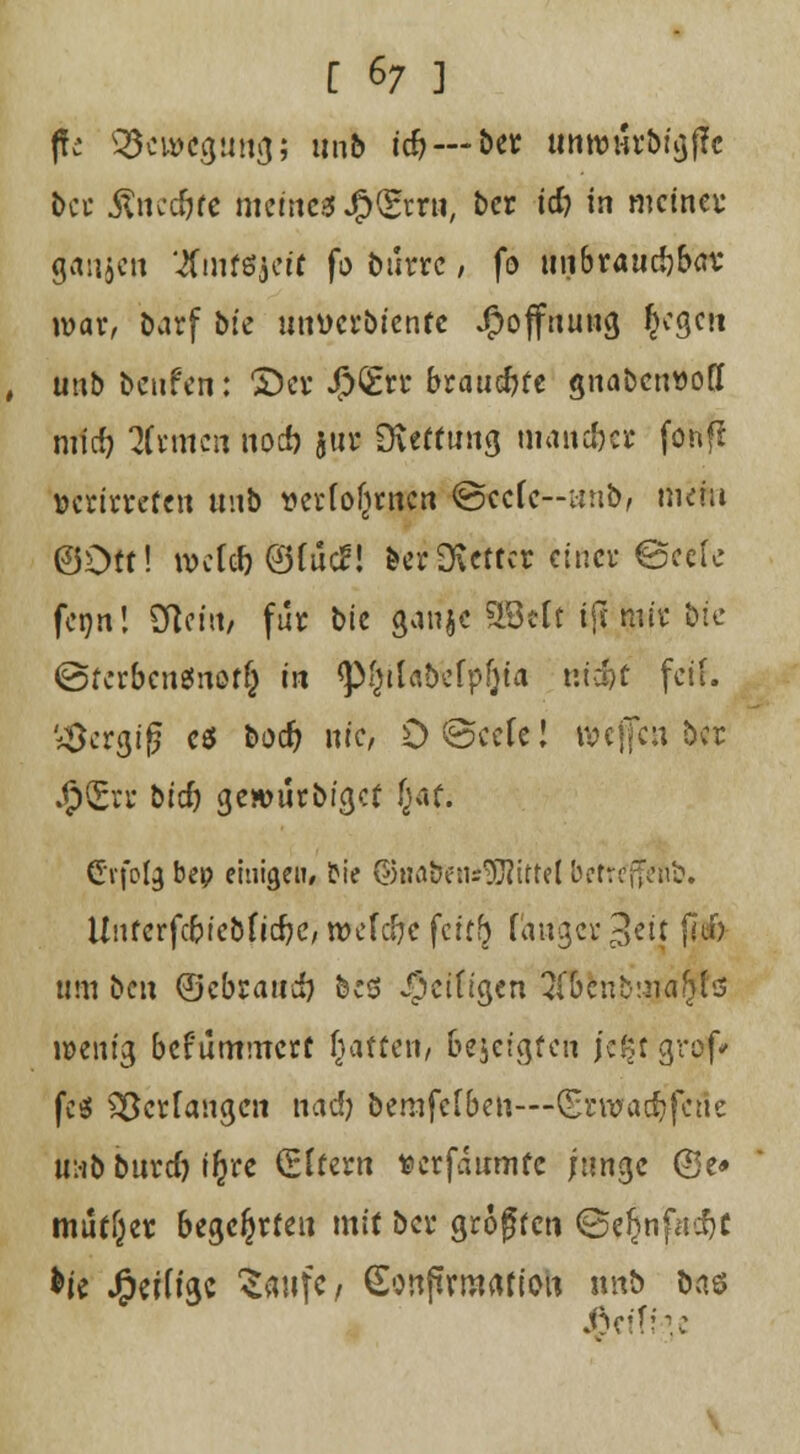 [ 67 ]
ste Bewegung; und ich---der unwürdigste
der Knechte meines HErrn, der ich in meiner
ganzen Amtszeit so dürre, so unbrauchbar
war, darf die unverdiente Hoffnung hegen
und denken: Der HErr brauchte gnadenvoll
mich Armen noch zur Rettung mancher sonst
verirreten und verlohrnen Seele--und, mein
GOtt! welch Glück! der Retter einer Seele
seyn! Nein, für die ganze Welt ist mir die
Sterbensnoth in Philadelphia nicht feil.
Vergiß es doch nie, O Seele! wessen der
HErr dich gewürdiget hat.
Erfolg bey einigen, die Gnadens-Mittel betreffend.
Unterschiedliche, welche seith langer Zeit sich
um den Gebrauch des Heiligen Abendmahls
wenig bekümmert hatten, bezeigten jetzt gros-
ses Verlangen nach demselben---Erwachsene
und durch ihre Eltern versäumte junge Ge-
müther begehrten mit der größten Sehnsucht
die Heilige Taufe, Confirmation und das
Heilige